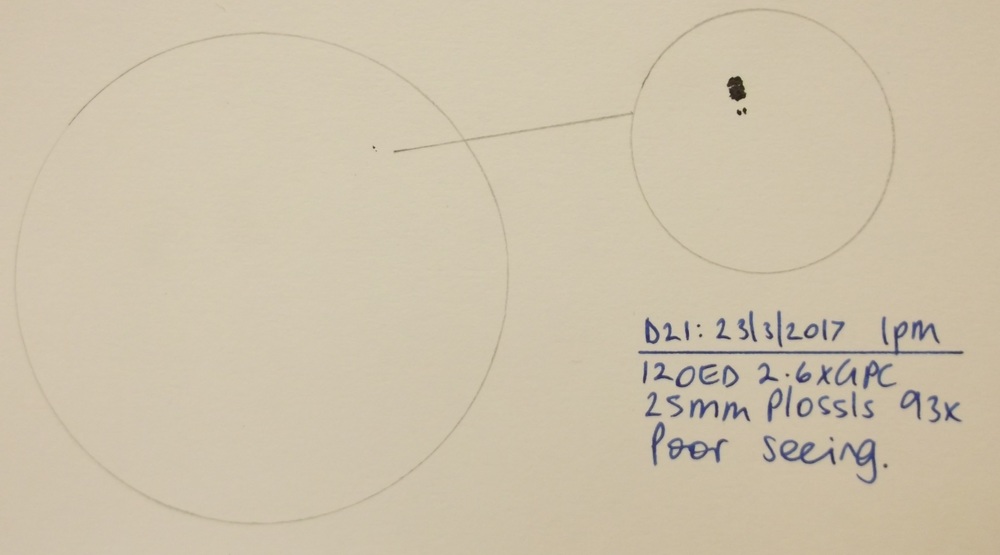 D21: 23/3/2017 1pm
120ED 2.6xGPC
25mm Plossls 93x
Poor seeing.